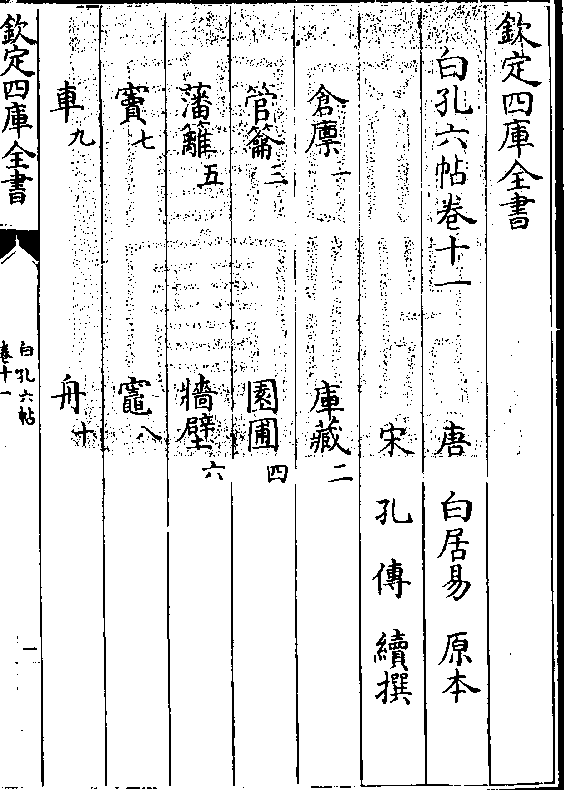 欽定四庫全書
白孔六帖卷十一
唐 白居易 原本
宋 孔傳 續撰
倉廪一 庫藏二
管籥三 園圃四
藩籬五 牆壁六
竇七 竈八
車九 舟十
欽定四庫全書
白孔六帖
卷十一
一